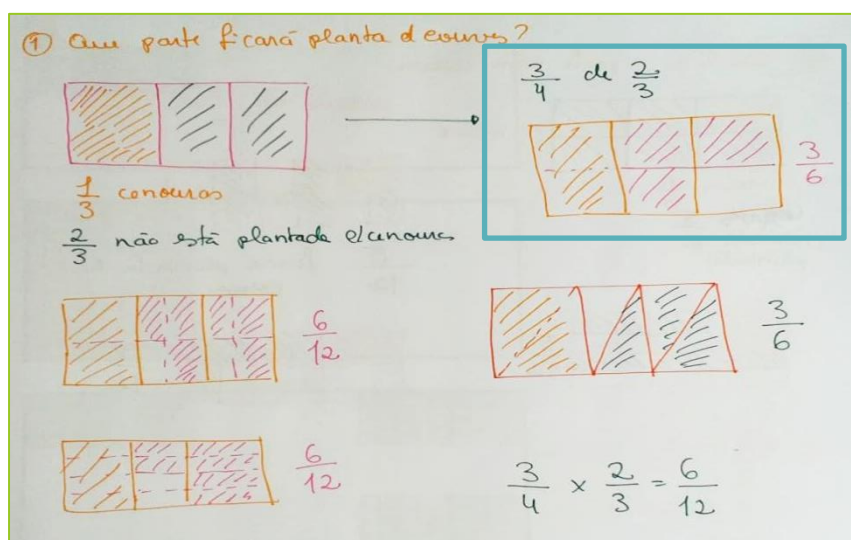 ① Que parte ficará planta d couves?
3/4 de 2/3
3/6
1/3 cenouras
2/3 não está plantada c/ cenouras
6/12
3/6
6/12
3/4 × 2/3 = 6/12